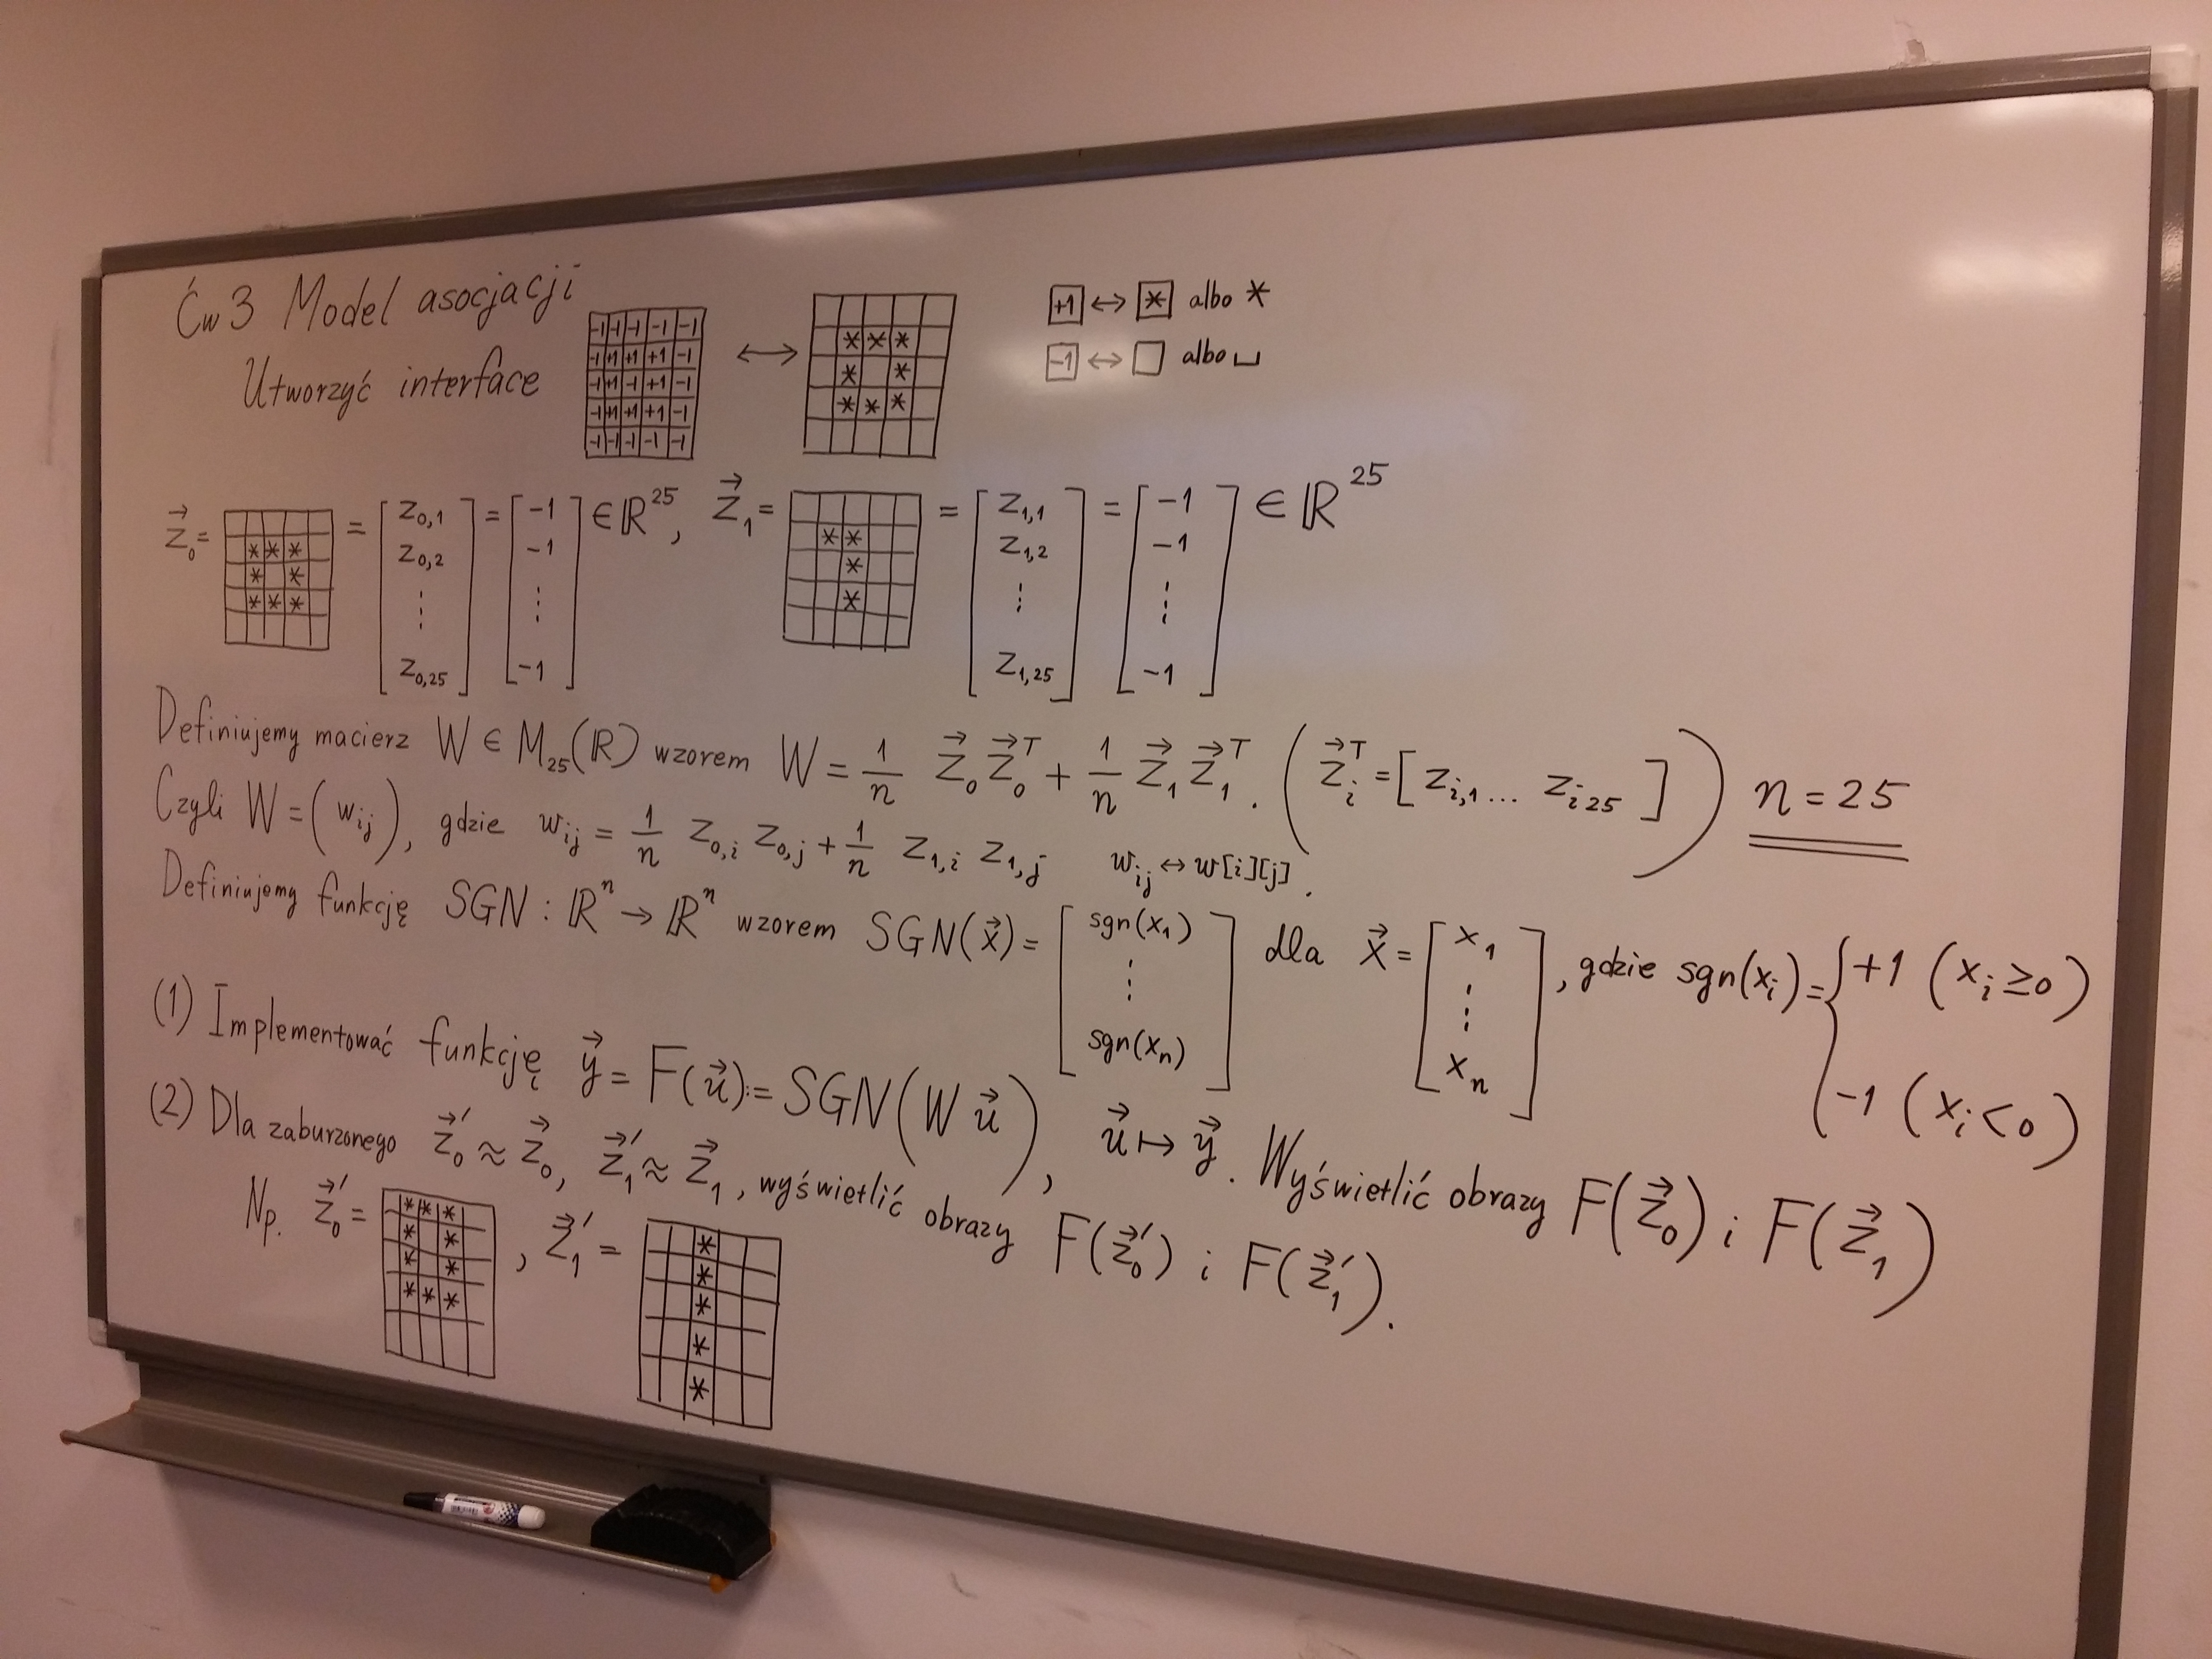 Ćw 3 Model asocjacji
Utworzyć interface
-1 -1 -1 -1 -1
-1 +1 +1 +1 -1
-1 +1 -1 +1 -1
-1 +1 +1 +1 -1
-1 -1 -1 -1 -1
↔
* * *
* *
* * *
+1 ↔ * albo *
-1 ↔ □ albo ⌴
z⃗₀ = [* * * / * * / * * *] = [z₀,₁ z₀,₂ ⋮ z₀,₂₅] = [-1 -1 ⋮ -1] ∈ ℝ²⁵, z⃗₁ = [* * / * / *] = [z₁,₁ z₁,₂ ⋮ z₁,₂₅] = [-1 -1 ⋮ -1] ∈ ℝ²⁵
Definiujemy macierz W ∈ M₂₅(ℝ) wzorem W = 1/n z⃗₀ z⃗₀ᵀ + 1/n z⃗₁ z⃗₁ᵀ. (z⃗ᵢᵀ = [zᵢ,₁ ... zᵢ ₂₅]) n = 25
Czyli W = (wᵢⱼ), gdzie wᵢⱼ = 1/n z₀,ᵢ z₀,ⱼ + 1/n z₁,ᵢ z₁,ⱼ wᵢⱼ ↔ w[i][j].
Definiujemy funkcję SGN : ℝⁿ → ℝⁿ wzorem SGN(x⃗) = [sgn(x₁) ⋮ sgn(xₙ)] dla x⃗ = [x₁ ⋮ xₙ], gdzie sgn(xᵢ) = { +1 (xᵢ ≥ 0) -1 (xᵢ < 0)
(1) Implementować funkcję y⃗ = F(u⃗) := SGN(W u⃗), u⃗ ↦ y⃗. Wyświetlić obrazy F(z⃗₀) i F(z⃗₁)
(2) Dla zaburzonego z⃗₀′ ≈ z⃗₀, z⃗₁′ ≈ z⃗₁, wyświetlić obrazy F(z⃗₀′) i F(z⃗₁′).
Np. z⃗₀′ = [* * * / * * / * * / * * *], z⃗₁′ = [* / * / * / * / *]